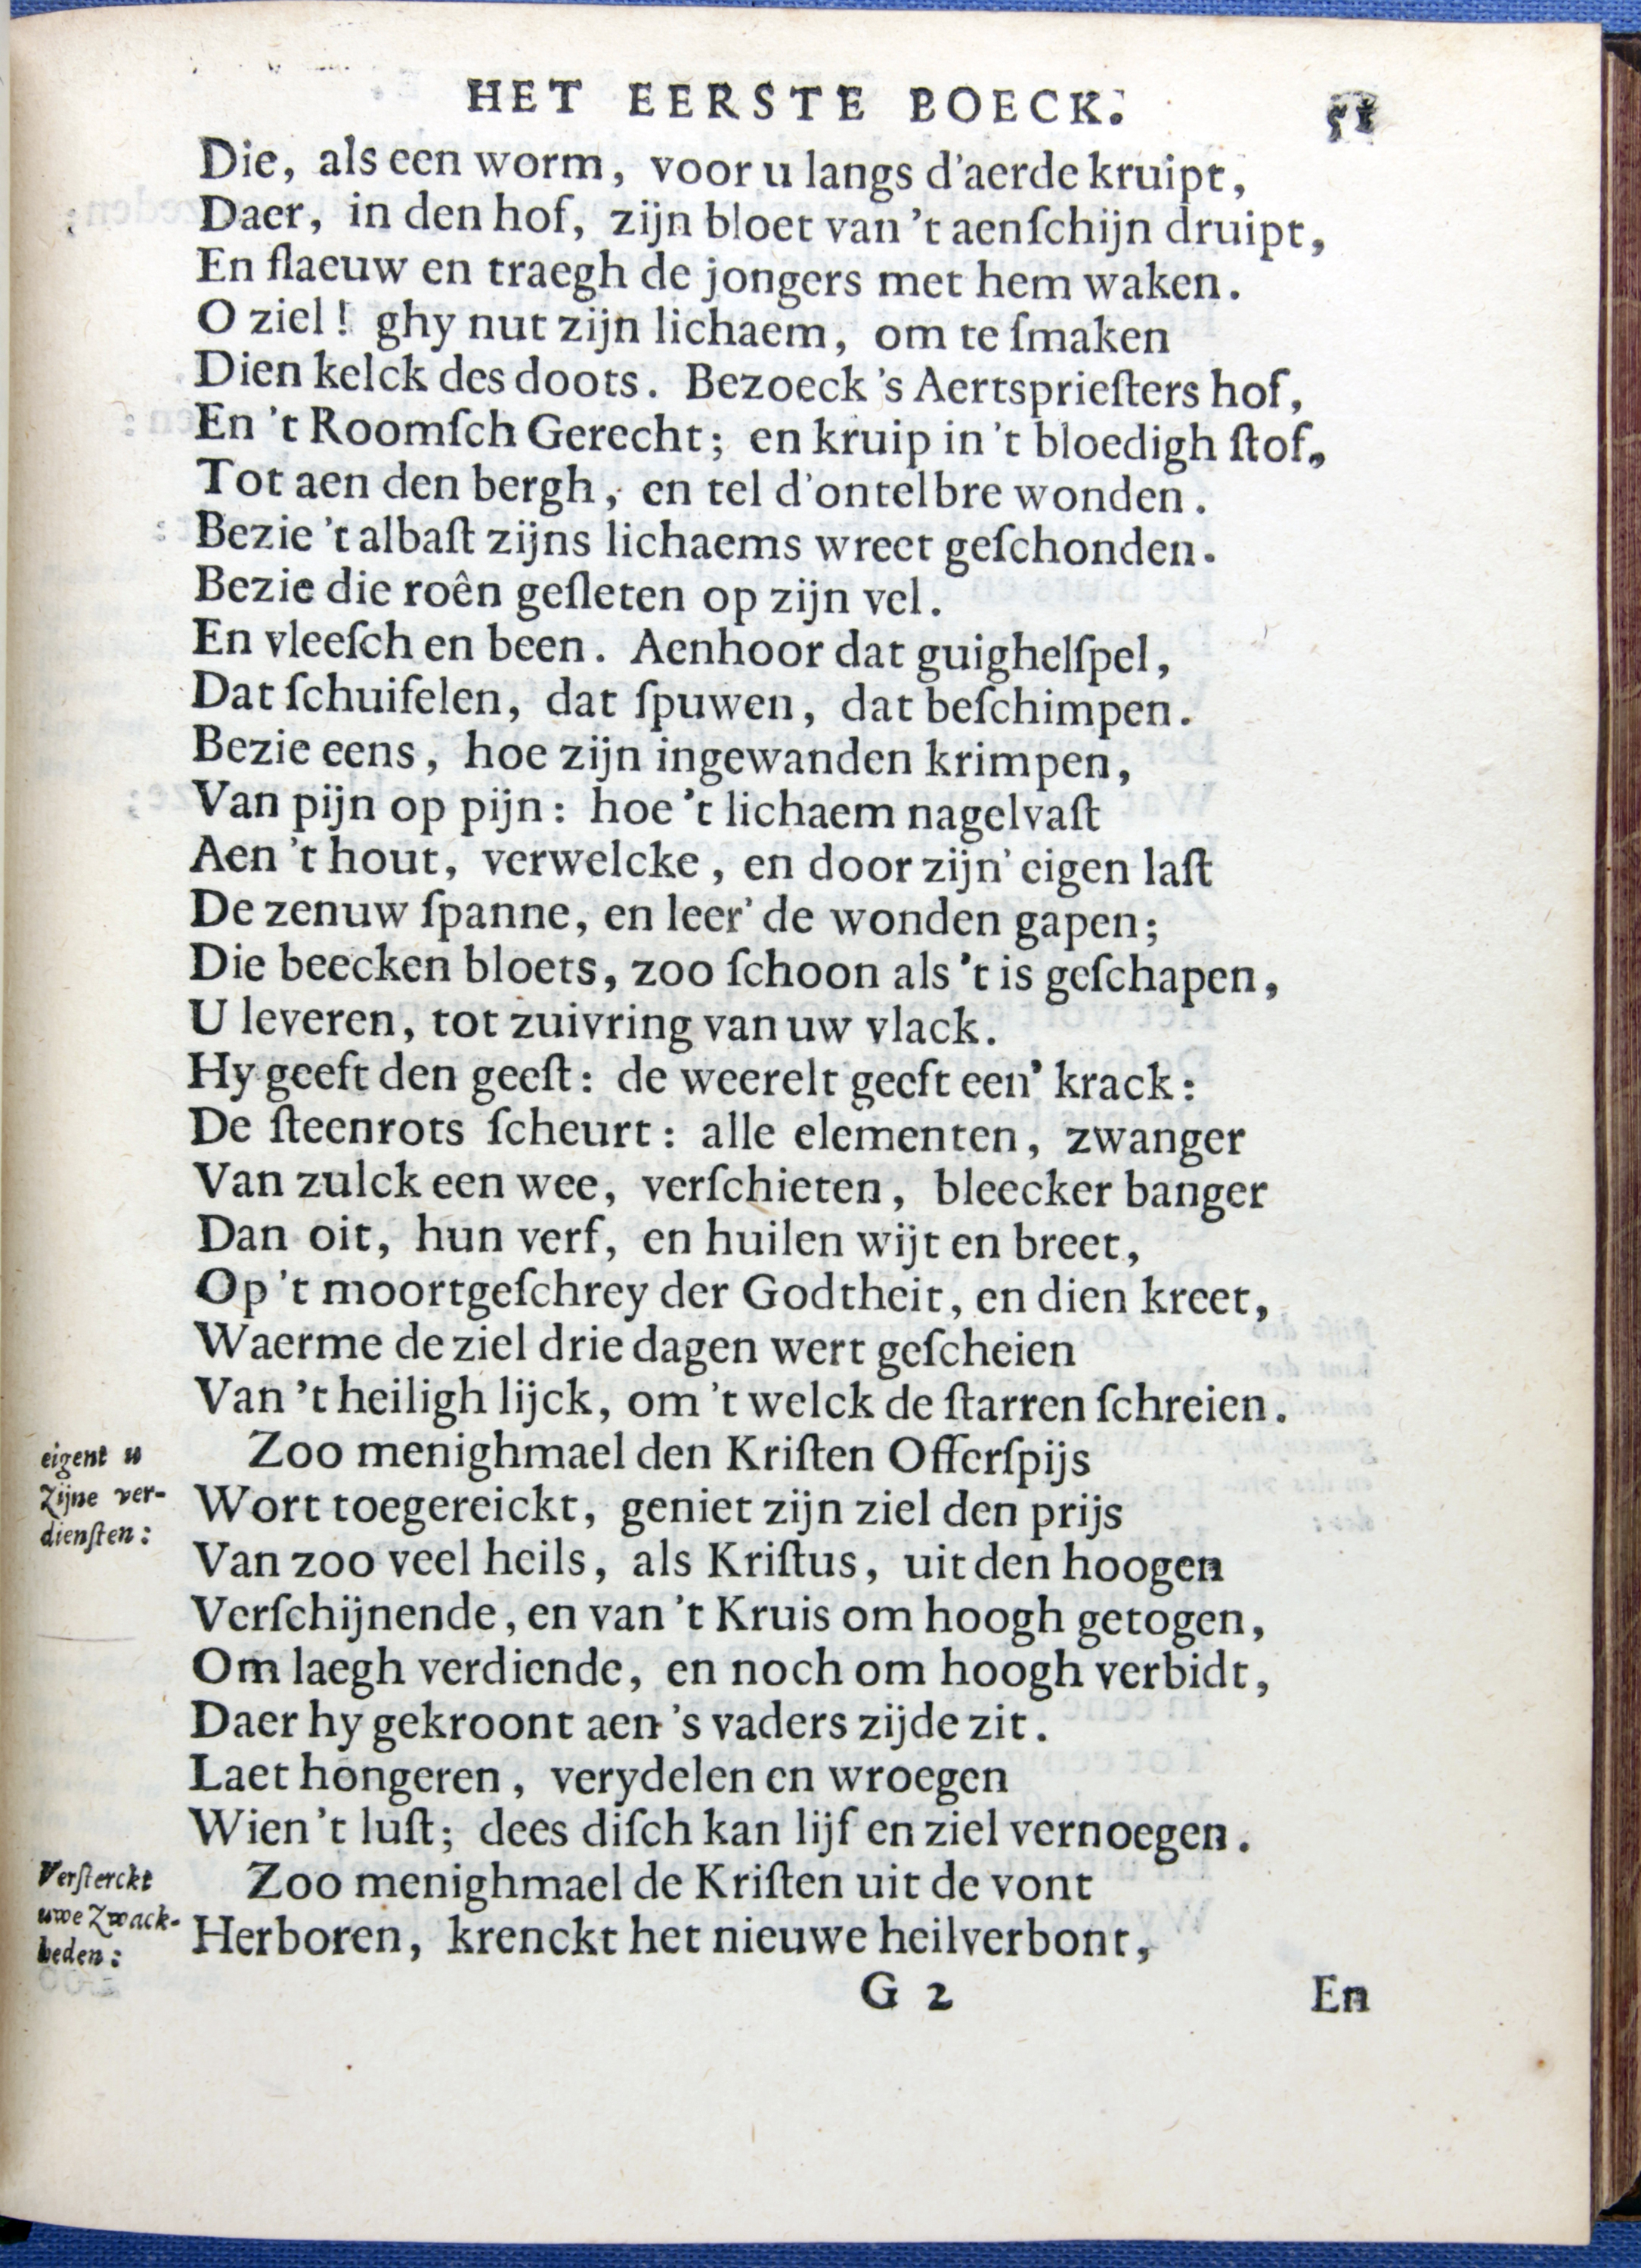 HET EERSTE BOECK. 51
Die, als een worm, voor u langs d'aerde kruipt,
Daer, in den hof, zijn bloet van 't aenſchijn druipt,
En flaeuw en traegh de jongers met hem waken.
O ziel! ghy nut zijn lichaem, om te ſmaken
Dien kelck des doots. Bezoeck 's Aertsprieſters hof,
En 't Roomſch Gerecht; en kruip in 't bloedigh ſtof,
Tot aen den bergh, en tel d'ontelbre wonden.
Bezie 't albaſt zijns lichaems wreet geſchonden.
Bezie die roên geſleten op zijn vel.
En vleeſch en been. Aenhoor dat guighelſpel,
Dat ſchuifelen, dat ſpuwen, dat beſchimpen.
Bezie eens, hoe zijn ingewanden krimpen,
Van pijn op pijn: hoe 't lichaem nagelvaſt
Aen 't hout, verwelcke, en door zijn' eigen laſt
De zenuw ſpanne, en leer' de wonden gapen;
Die beecken bloets, zoo ſchoon als 't is geſchapen,
U leveren, tot zuivring van uw vlack.
Hy geeft den geeſt: de weerelt geeft een' krack:
De ſteenrots ſcheurt: alle elementen, zwanger
Van zulck een wee, verſchieten, bleecker banger
Dan oit, hun verf, en huilen wijt en breet,
Op 't moortgeſchrey der Godtheit, en dien kreet,
Waerme de ziel drie dagen wert geſcheien
Van 't heiligh lijck, om 't welck de ſtarren ſchreien.
eigent u
zijne ver-
dienſten:
Zoo menighmael den Kriſten Offerſpijs
Wort toegereickt, geniet zijn ziel den prijs
Van zoo veel heils, als Kriſtus, uit den hoogen
Verſchijnende, en van 't Kruis om hoogh getogen,
Om laegh verdiende, en noch om hoogh verbidt,
Daer hy gekroont aen 's vaders zijde zit.
Laet hongeren, verydelen en wroegen
Wien 't luſt; dees diſch kan lijf en ziel vernoegen.
Verſterckt
uwe zwack-
heden:
Zoo menighmael de Kriſten uit de vont
Herboren, krenckt het nieuwe heilverbont,
G 2 En